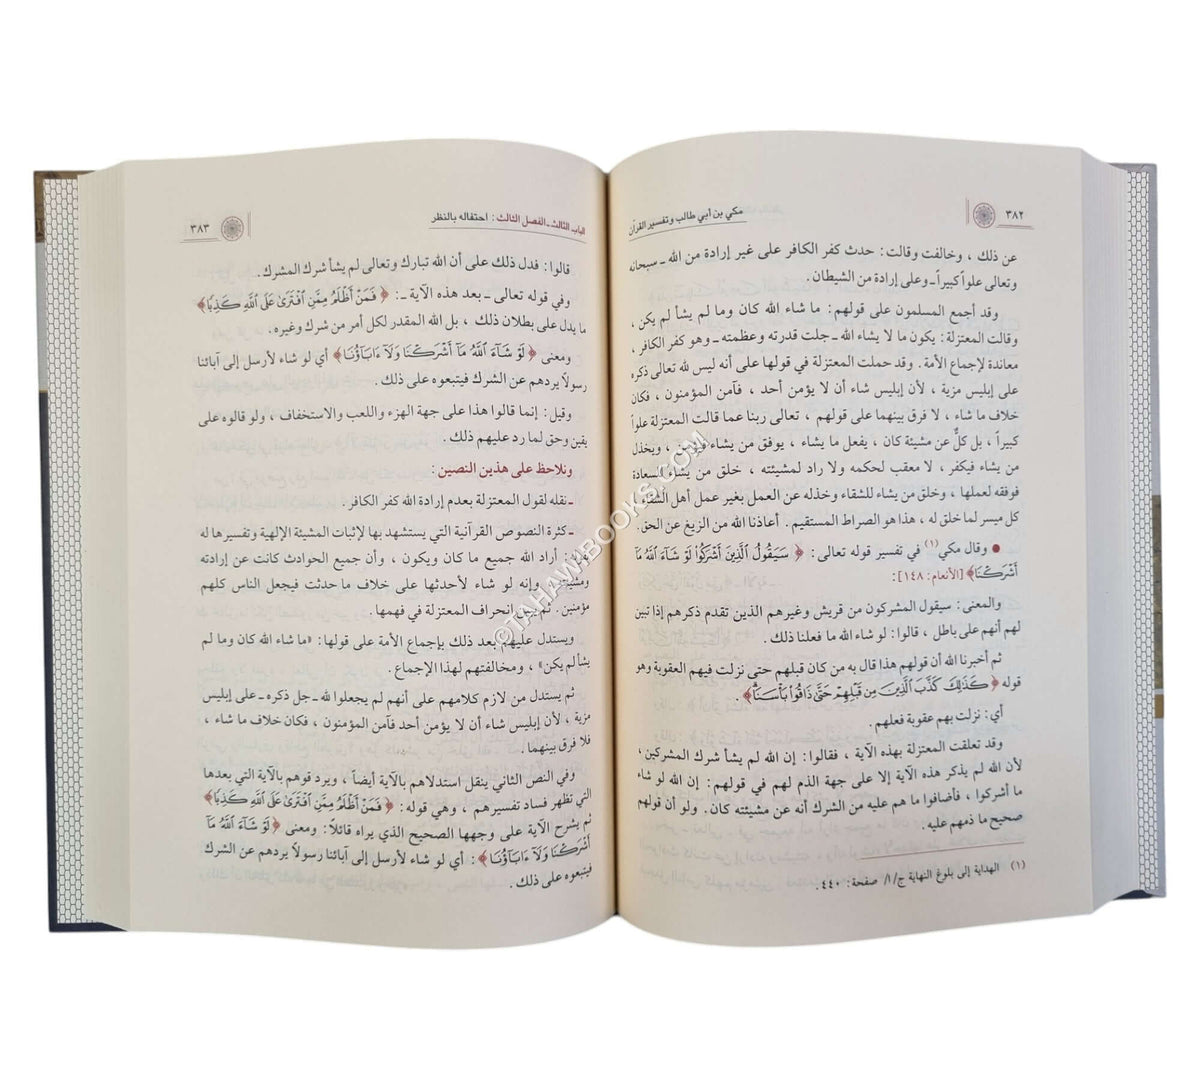 ٣٨٢
مكي بن أبي طالب وتفسير القرآن
عن ذلك ، وخالفت وقالت : حدث كفر الكافر على غير إرادة من الله ـ سبحانه
وتعالى علواً كبيراً ـ وعلى إرادة من الشيطان .
وقد أجمع المسلمون على قولهم : ما شاء الله كان وما لم يشأ لم يكن ،
وقالت المعتزلة : يكون ما لا يشاء الله ـ جلت قدرته وعظمته ـ وهو كفر الكافر ،
معاندة لإجماع الأمة . وقد حملت المعتزلة في قولها على أنه ليس لله تعالى ذكره
على إبليس مزية ، لأن إبليس شاء أن لا يؤمن أحد ، فآمن المؤمنون ، فكان
خلاف ما شاء ، لا فرق بينهما على قولهم ، تعالى ربنا عما قالت المعتزلة علواً
كبيراً ، بل كلٌّ عن مشيئة كان ، يفعل ما يشاء ، يوفق من يشاء فيؤمن ، ويخذل
من يشاء فيكفر ، لا معقب لحكمه ولا راد لمشيئته ، خلق من يشاء للسعادة
فوفقه لعملها ، وخلق من يشاء للشقاء وخذله عن العمل بغير عمل أهل الشقاء ،
كل ميسر لما خلق له ، هذا هو الصراط المستقيم . أعاذنا الله من الزيغ عن الحق .
● وقال مكي(١) في تفسير قوله تعالى : ﴿ سَيَقُولُ الَّذِينَ أَشْرَكُوا لَوْ شَاءَ اللَّهُ مَا
أَشْرَكْنَا﴾ [الأنعام : ١٤٨] :
والمعنى : سيقول المشركون من قريش وغيرهم الذين تقدم ذكرهم إذا تبين
لهم أنهم على باطل ، قالوا : لو شاء الله ما فعلنا ذلك .
ثم أخبرنا الله أن قولهم هذا قال به من كان قبلهم حتى نزلت فيهم العقوبة وهو
قوله ﴿ كَذَلِكَ كَذَّبَ الَّذِينَ مِن قَبْلِهِمْ حَتَّى ذَاقُوا بَأْسَنَا﴾ .
أي : نزلت بهم عقوبة فعلهم .
وقد تعلقت المعتزلة بهذه الآية ، فقالوا : إن الله لم يشأ شرك المشركين ،
لأن الله لم يذكر هذه الآية إلا على جهة الذم لهم في قولهم : إن الله لو شاء
ما أشركوا ، فأضافوا ما هم عليه من الشرك أنه عن مشيئته كان . ولو أن قولهم
صحيح ما ذمهم عليه .
(١) الهداية إلى بلوغ النهاية ج/ ١/ صفحة : ٤٤٠ .
الباب الثالث ـ الفصل الثالث : احتفاله بالنظر
٣٨٣
قالوا : فدل ذلك على أن الله تبارك وتعالى لم يشأ شرك المشرك .
وفي قوله تعالى ـ بعد هذه الآية ـ : ﴿ فَمَنْ أَظْلَمُ مِمَّنِ افْتَرَى عَلَى اللَّهِ كَذِبًا﴾
ما يدل على بطلان ذلك ، بل الله المقدر لكل أمر من شرك وغيره .
ومعنى ﴿ لَوْ شَاءَ اللَّهُ مَا أَشْرَكْنَا وَلَا ءَابَاؤُنَا﴾ أي لو شاء لأرسل إلى آبائنا
رسولاً يردهم عن الشرك فيتبعوه على ذلك .
وقيل : إنما قالوا هذا على جهة الهزء واللعب والاستخفاف ، ولو قالوه على
يقين وحق لما رد عليهم ذلك .
ونلاحظ على هذين النصين :
ـ نقله لقول المعتزلة بعدم إرادة الله كفر الكافر .
ـ كثرة النصوص القرآنية التي يستشهد بها لإثبات المشيئة الإلهية وتفسيرها له
أراد الله جميع ما كان ويكون ، وأن جميع الحوادث كانت عن إرادته
ومشيئته وإنه لو شاء لأحدثها على خلاف ما حدثت فيجعل الناس كلهم
مؤمنين . ثم يبين انحراف المعتزلة في فهمها .
ويستدل عليهم بعد ذلك بإجماع الأمة على قولها : «ما شاء الله كان وما لم
يشأ لم يكن» ، ومخالفتهم لهذا الإجماع .
ثم يستدل من لازم كلامهم على أنهم لم يجعلوا لله ـ جل ذكره ـ على إبليس
مزية ، لأن إبليس شاء أن لا يؤمن أحد فآمن المؤمنون ، فكان خلاف ما شاء ،
فلا فرق بينهما .
وفي النص الثاني ينقل استدلاهم بالآية أيضاً ، ويرد قوهم بالآية التي بعدها
التي تظهر فساد تفسيرهم ، وهي قوله : ﴿ فَمَنْ أَظْلَمُ مِمَّنِ افْتَرَى عَلَى اللَّهِ كَذِبًا﴾
ثم يشرح الآية على وجهها الصحيح الذي يراه قائلاً : ومعنى ﴿ لَوْ شَاءَ اللَّهُ مَا
أَشْرَكْنَا وَلَا ءَابَاؤُنَا﴾ : أي لو شاء لأرسل إلى آبائنا رسولاً يردهم عن الشرك
فيتبعوه على ذلك .
©TAHAWIBOOKS.COM